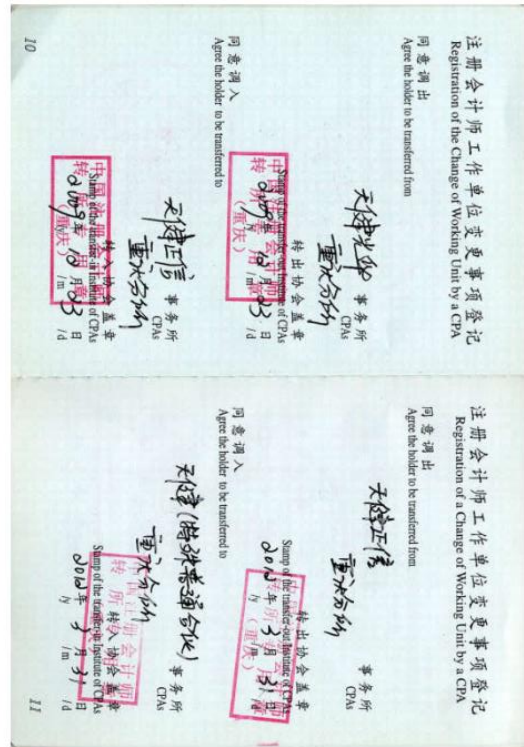 注册会计师工作单位变更事项登记
Registration of the Change of Working Unit by a CPA
同意调出
Agree the holder to be transferred from
天健光华
重庆分所
事务所
CPAs
转出协会盖章
Stamp of the transfer-out Institute of CPAs
中国注册会计师
转所专用章
(重庆)
2009年 12月 23日
/y /m /d
同意调入
Agree the holder to be transferred to
天健正信
重庆分所
事务所
CPAs
转入协会盖章
Stamp of the transfer-in Institute of CPAs
中国注册会计师
转所专用章
(重庆)
2009年 12月 23日
/y /m /d
10
注册会计师工作单位变更事项登记
Registration of a Change of Working Unit by a CPA
同意调出
Agree the holder to be transferred from
天健正信
重庆分所
事务所
CPAs
转出协会盖章
Stamp of the transfer-out Institute of CPAs
转所专用章
(重庆)
2012年 3月 31日
/y /m /d
同意调入
Agree the holder to be transferred to
天健(特殊普通合伙)
重庆分所
事务所
CPAs
转入协会盖章
Stamp of the transfer-in Institute of CPAs
注册会计师
2012年 3月 31日
/y /m /d
11